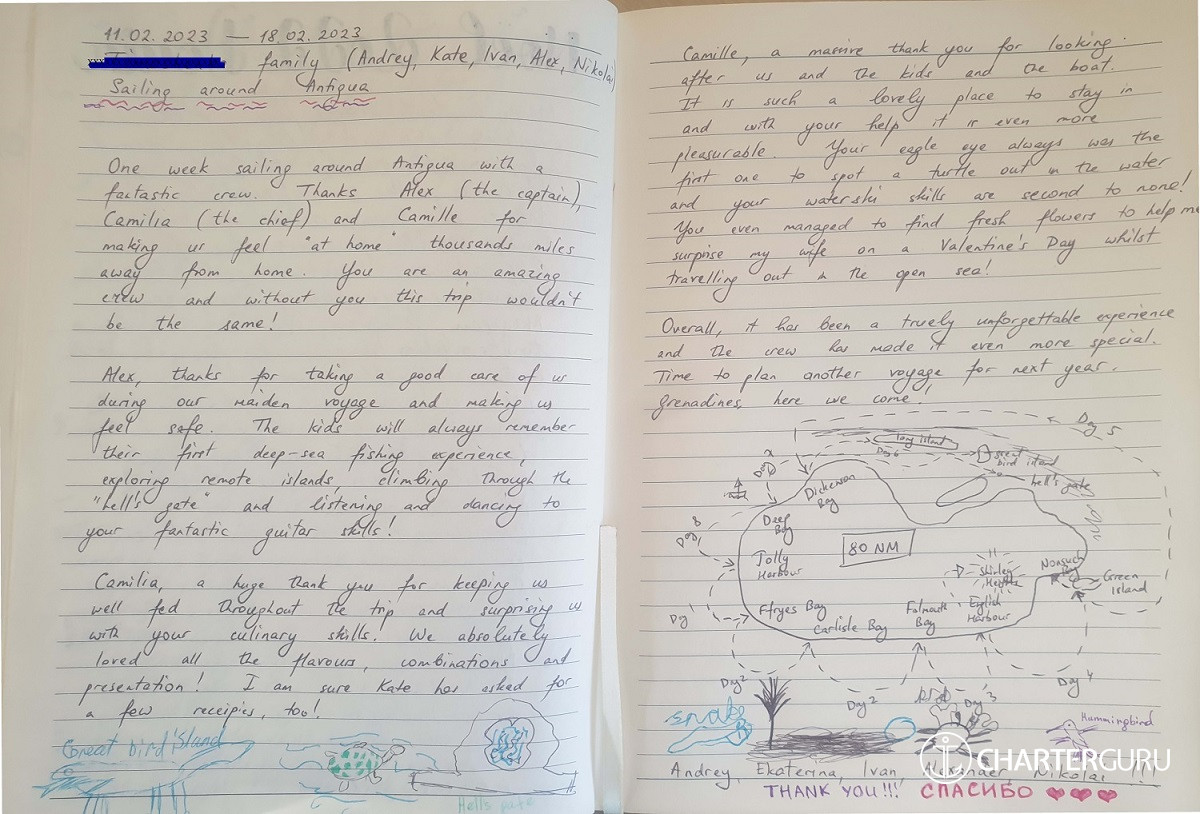 11.02.2023 — 18.02.2023
family (Andrey, Kate, Ivan, Alex, Nikolai)
Sailing around Antigua
One week sailing around Antigua with a
fantastic crew. Thanks Alex (the captain),
Camilia (the chief) and Camille for
making us feel "at home" thousands miles
away from home. You are an amazing
crew and without you this trip wouldn't
be the same!
Alex, thanks for taking a good care of us
during our maiden voyage and making us
feel safe. The kids will always remember
their first deep-sea fishing experience,
exploring remote islands, climbing through the
"hell's gate" and listening and dancing to
your fantastic guitar skills!
Camilia, a huge thank you for keeping us
well fed throughout the trip and surprising us
with your culinary skills. We absolutely
loved all the flavours, combinations and
presentation! I am sure Kate has asked for
a few receipies, too!
Great bird island
Hell's gate
Camille, a massive thank you for looking
after us and the kids and the boat.
It is such a lovely place to stay in
and with your help it is even more
pleasurable. Your eagle eye always was the
first one to spot a turtle out in the water
and your waterski skills are second to none!
You even managed to find fresh flowers to help me
surprise my wife on a Valentine's Day whilst
travelling out in the open sea!
Overall, it has been a truely unforgettable experience
and the crew has made it even more special.
Time to plan another voyage for next year.
Grenadines, here we come!
Day 5
long island
Day 6
great bird island
hell's gate
Dickenson Bay
Deep Bay
80 NM
Jolly Harbour
Shirley Heights
Nonsuch Bay
Green Island
Ffryes Bay
Carlisle Bay
Falmouth Bay
English Harbour
Day 2
Day 2
Day 3
Day 4
snake
Hummingbird
CHARTERGURU
Andrey, Ekaterina, Ivan, Alexander, Nikolai !!!
THANK YOU!!! СПАСИБО ❤❤❤